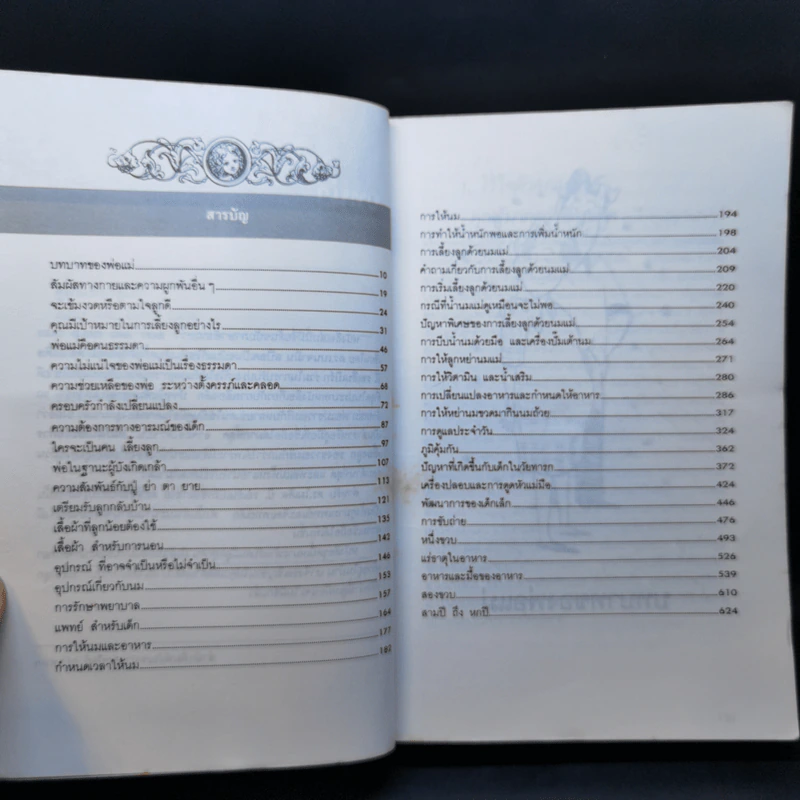 สารบัญ
บทบาทของพ่อแม่ 10
สัมผัสทางกายและความผูกพันอื่น ๆ 19
จะเข้มงวดหรือตามใจลูกดี 24
คุณมีเป้าหมายในการเลี้ยงลูกอย่างไร 31
พ่อแม่คือคนธรรมดา 46
ความไม่แน่ใจของพ่อแม่เป็นเรื่องธรรมดา 57
ความช่วยเหลือของพ่อ ระหว่างตั้งครรภ์และคลอด 68
ครอบครัวกำลังเปลี่ยนแปลง 73
ความต้องการทางอารมณ์ของเด็ก 87
ใครจะเป็นคน เลี้ยงลูก 97
พ่อในฐานะผู้บังเกิดเกล้า 107
ความสัมพันธ์กับปู่ ย่า ตา ยาย 113
เตรียมรับลูกกลับบ้าน 121
เสื้อผ้าที่ลูกน้อยต้องใช้ 135
เสื้อผ้า สำหรับการนอน 142
อุปกรณ์ ที่อาจจำเป็นหรือไม่จำเป็น 146
อุปกรณ์เกี่ยวกับนม 153
การรักษาพยาบาล 157
แพทย์ สำหรับเด็ก 164
การให้นมและอาหาร 177
กำหนดเวลาให้นม 182
การให้นม 194
การทำให้น้ำหนักพอและการเพิ่มน้ำหนัก 198
การเลี้ยงลูกด้วยนมแม่ 204
คำถามเกี่ยวกับการเลี้ยงลูกด้วยนมแม่ 209
การเริ่มเลี้ยงลูกด้วยนมแม่ 220
กรณีที่น้ำนมแม่ดูเหมือนจะไม่พอ 240
ปัญหาพิเศษของการเลี้ยงลูกด้วยนมแม่ 254
การบีบน้ำนมด้วยมือ และเครื่องปั๊มเต้านม 264
การให้ลูกหย่านมแม่ 271
การให้วิตามิน และน้ำเสริม 280
การเปลี่ยนแปลงอาหารและกำหนดให้อาหาร 286
การให้หย่านมขวดมากินนมถ้วย 317
การดูแลประจำวัน 324
ภูมิคุ้มกัน 362
ปัญหาที่เกิดขึ้นกับเด็กในวัยทารก 372
เครื่องปลอบและการดูดหัวแม่มือ 424
พัฒนาการของเด็กเล็ก 446
การขับถ่าย 476
หนึ่งขวบ 493
แร่ธาตุในอาหาร 526
อาหารและมื้อของอาหาร 539
สองขวบ 610
สามปี ถึง หกปี 624